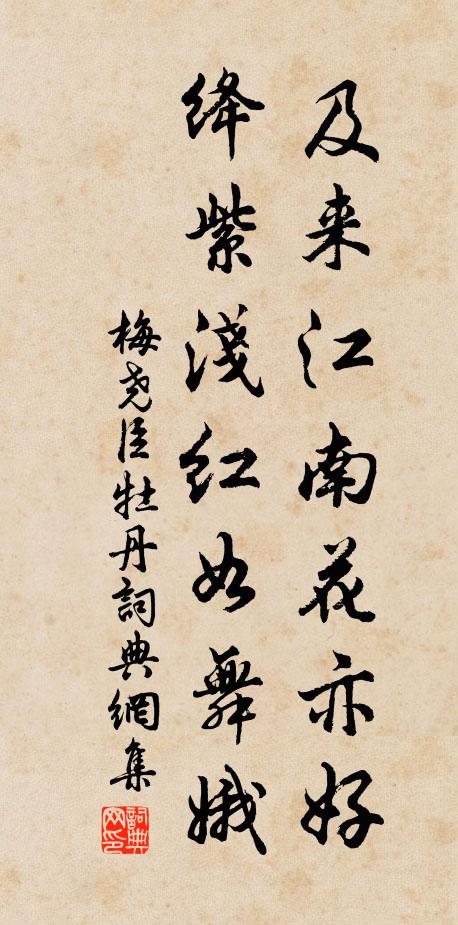 及来江南花亦好
绛紫淺红如舞娥
梅尧臣牡丹詞典網集
詞典网印